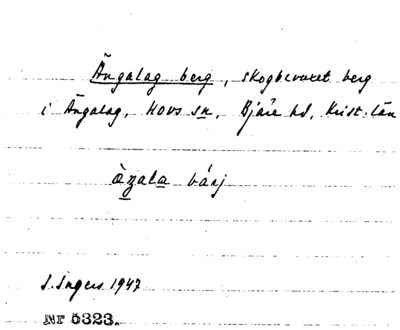 Ängalag berg, skogbevuxet berg
i Ängalag, Hovs sn, Bjäre hd, Krist. län
àŋala bárj
S. Ingers 1947
Nr 5323.